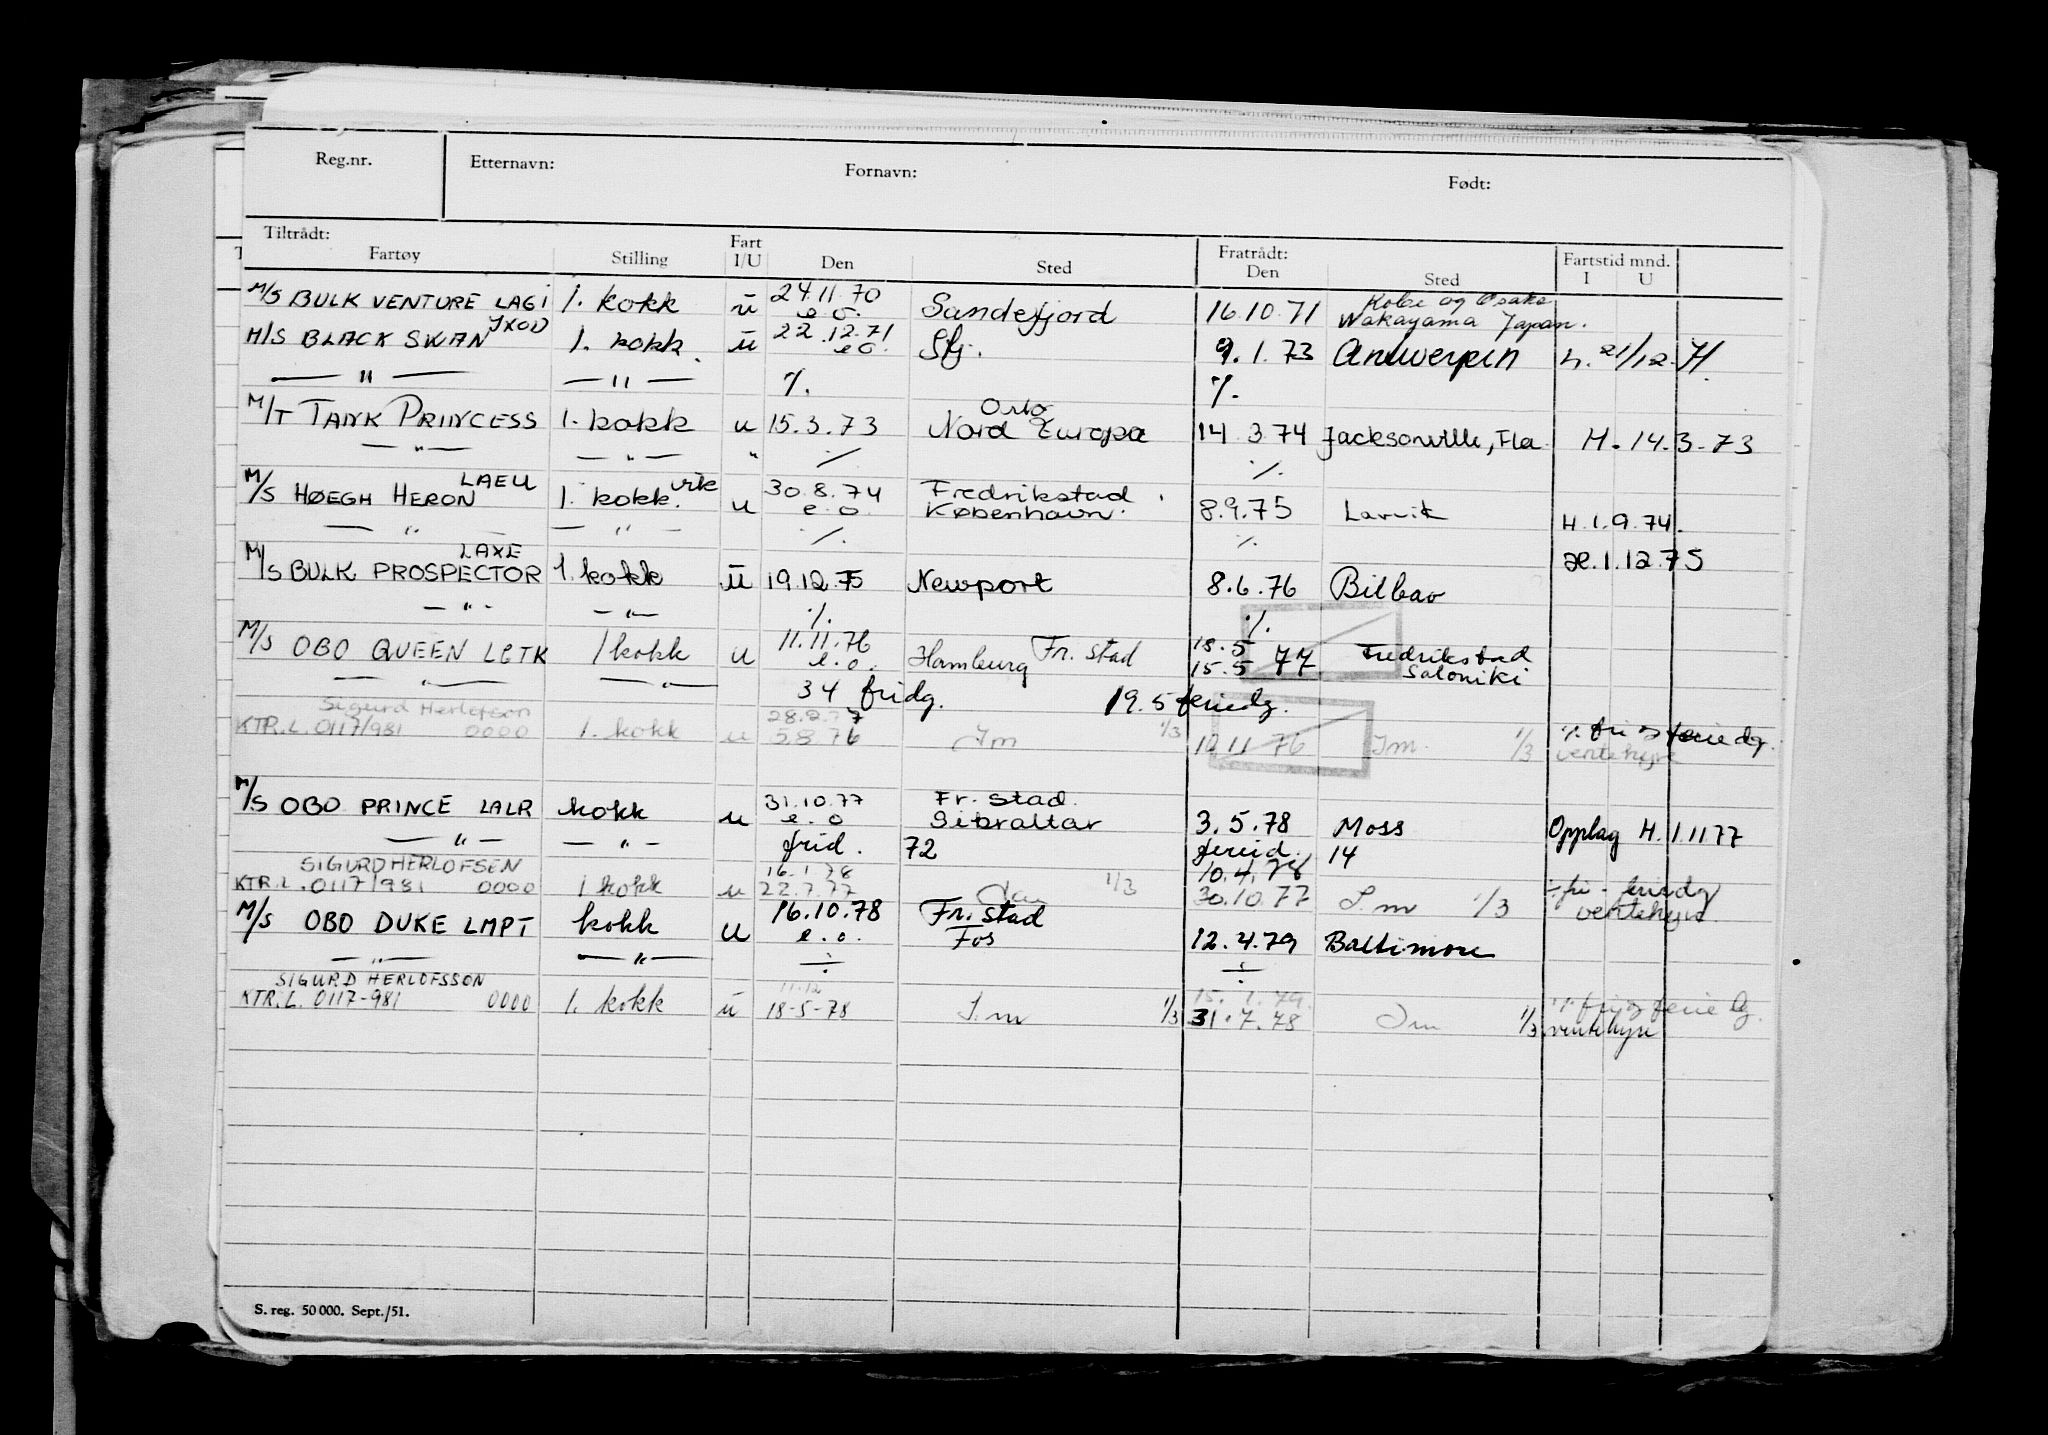 Reg.nr. Etternavn: Fornavn: Født:
Tiltrådt: Fartøy Stilling Fart I/U Den Sted Fratrådt: Den Sted Fartstid mnd. I U
M/S BULK VENTURE LAGI 1. kokk u 24.11.70 e.o. Sandefjord 16.10.71 Kobe og Osaka Wakayama Japan.
M/S BLACK SWAN JXOD 1. kokk. u 22.12.71 e.o. Sfj. 9.1.73 Antwerpen h. 21/12-71.
— " — — " — %. %.
M/T TANK PRINCESS 1. kokk u 15.3.73 Oslo Nord Europa 14.3.74 Jacksonville, Fla. H. 14.3-73
— " — — " — " % %
M/S HØEGH HERON LAEU 1. kokk. vik u 30.8.74 e.o. Fredrikstad København. 8.9.75 Larvik H.1.9.74.
— " — — " — % %
M/S BULK PROSPECTOR LAXE 1. kokk u 19.12.75 Newport 8.6.76 Bilbao æ.1.12.75
— " — — " — %. %.
M/S OBO QUEEN LETK 1 kokk u 11.11.76 e.o. Hamburg Fr. stad 18.5 15.5 77 Fredrikstad Saloniki
— " — — " — 34 fridg. 19.5 feriedg.
Sigurd Herlofson 28.2.77
KTR.L. 0117/981 0000 1. kokk u 5.8.76 Im 1/3 10.11.76 Im. 1/3 % fri feriedg. ventehyre
M/S OBO PRINCE LALR kokk u 31.10.77 e.o Fr. stad. Gibraltar 3.5.78 Moss Opplag H.1.11.77
— " — — " — frid. 72 feried. 14
SIGURD HERLOFSEN 16.1.78 10.4.78
KTR.L. 0117/981 0000 1 kokk u 22.7.77 1/3 30.10.77 I.m 1/3 ÷ fri - feriedg ventehyre
M/S OBO DUKE LMPT kokk u 16.10.78 e.o. Fr. stad Fos 12.4.79 Baltimore
— " — — " — ÷ ÷
SIGURD HERLOFSSON 11.12 15.1.79
KTR.L. 0117-981 0000 1. kokk u 18-5-78 I.m 1/3 31.7.78 Im 1/3 % fri feriedg. ventehyre
S. reg. 50 000. Sept./51.